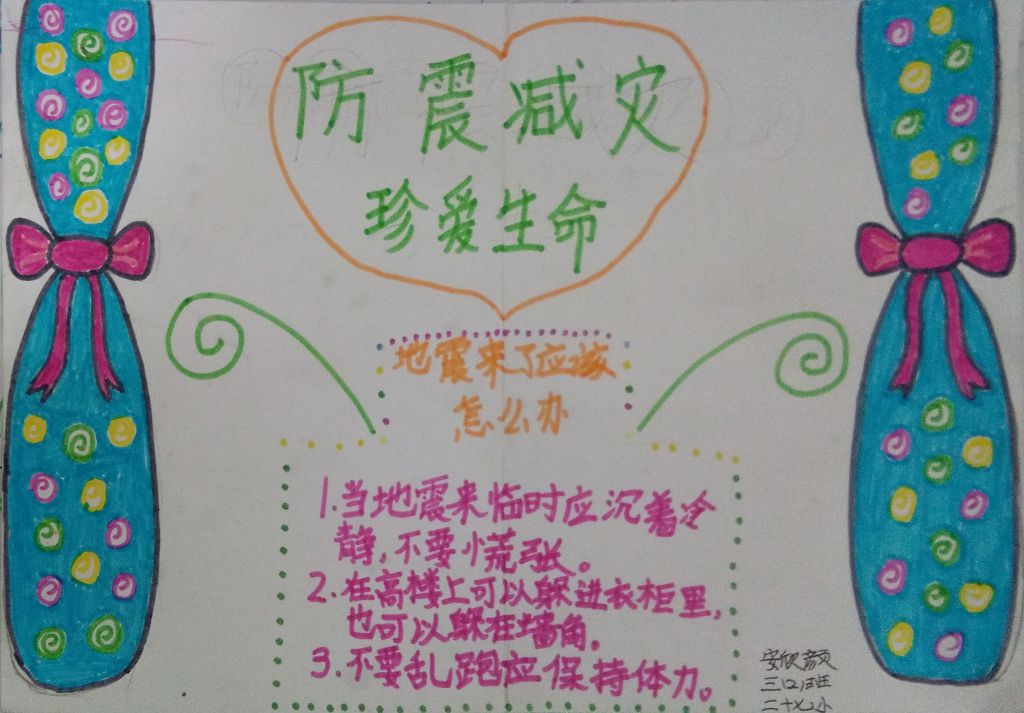 防震减灾
珍爱生命
地震来了应该
怎么办
1.当地震来临时应沉着冷
静,不要慌张。
2.在高楼上可以躲进衣柜里,
也可以躲在墙角。
3.不要乱跑应保持体力。
安欣颜
三(2)班
二十七小